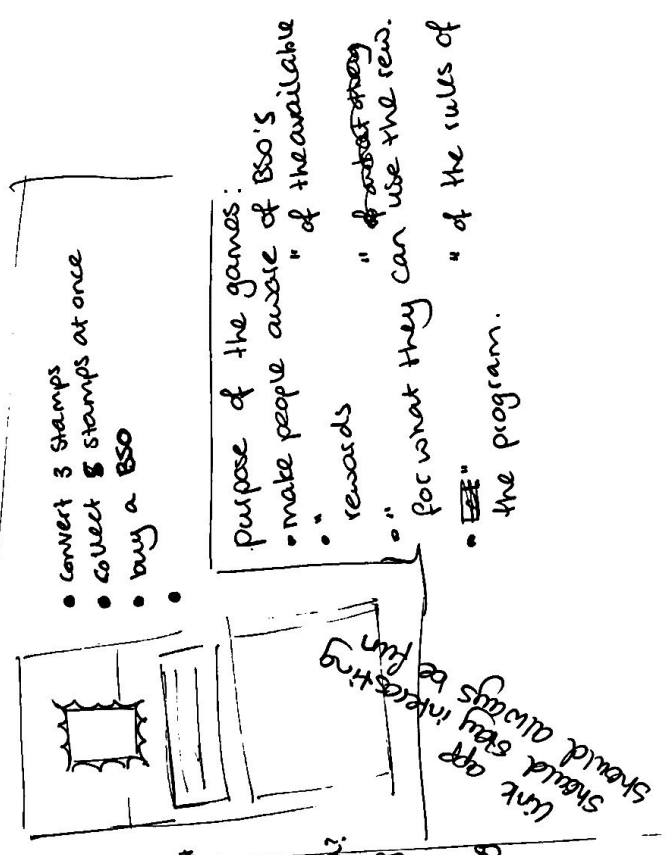 • convert 3 stamps
• collect 8 stamps at once
• buy a BSO
•
purpose of the games:
• make people aware of BSO's
• " " of the available
rewards
• " "
for what they can use the rew.
• " " of the rules of
the program.
link app
should stay interesting
should always be fun
?